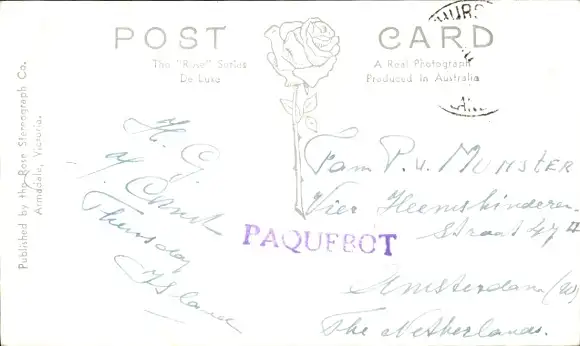 POST CARD
The "Rose" Series
De Luxe
A Real Photograph
Produced in Australia
Published by the Rose Stereograph Co.
Armadale, Victoria.
H. G.
Thursday
Island
PAQUEBOT
Fam P. v. MUNSTER
Vier Heemskinderen
straat 47 II
Amsterdam (W)
The Netherlands.